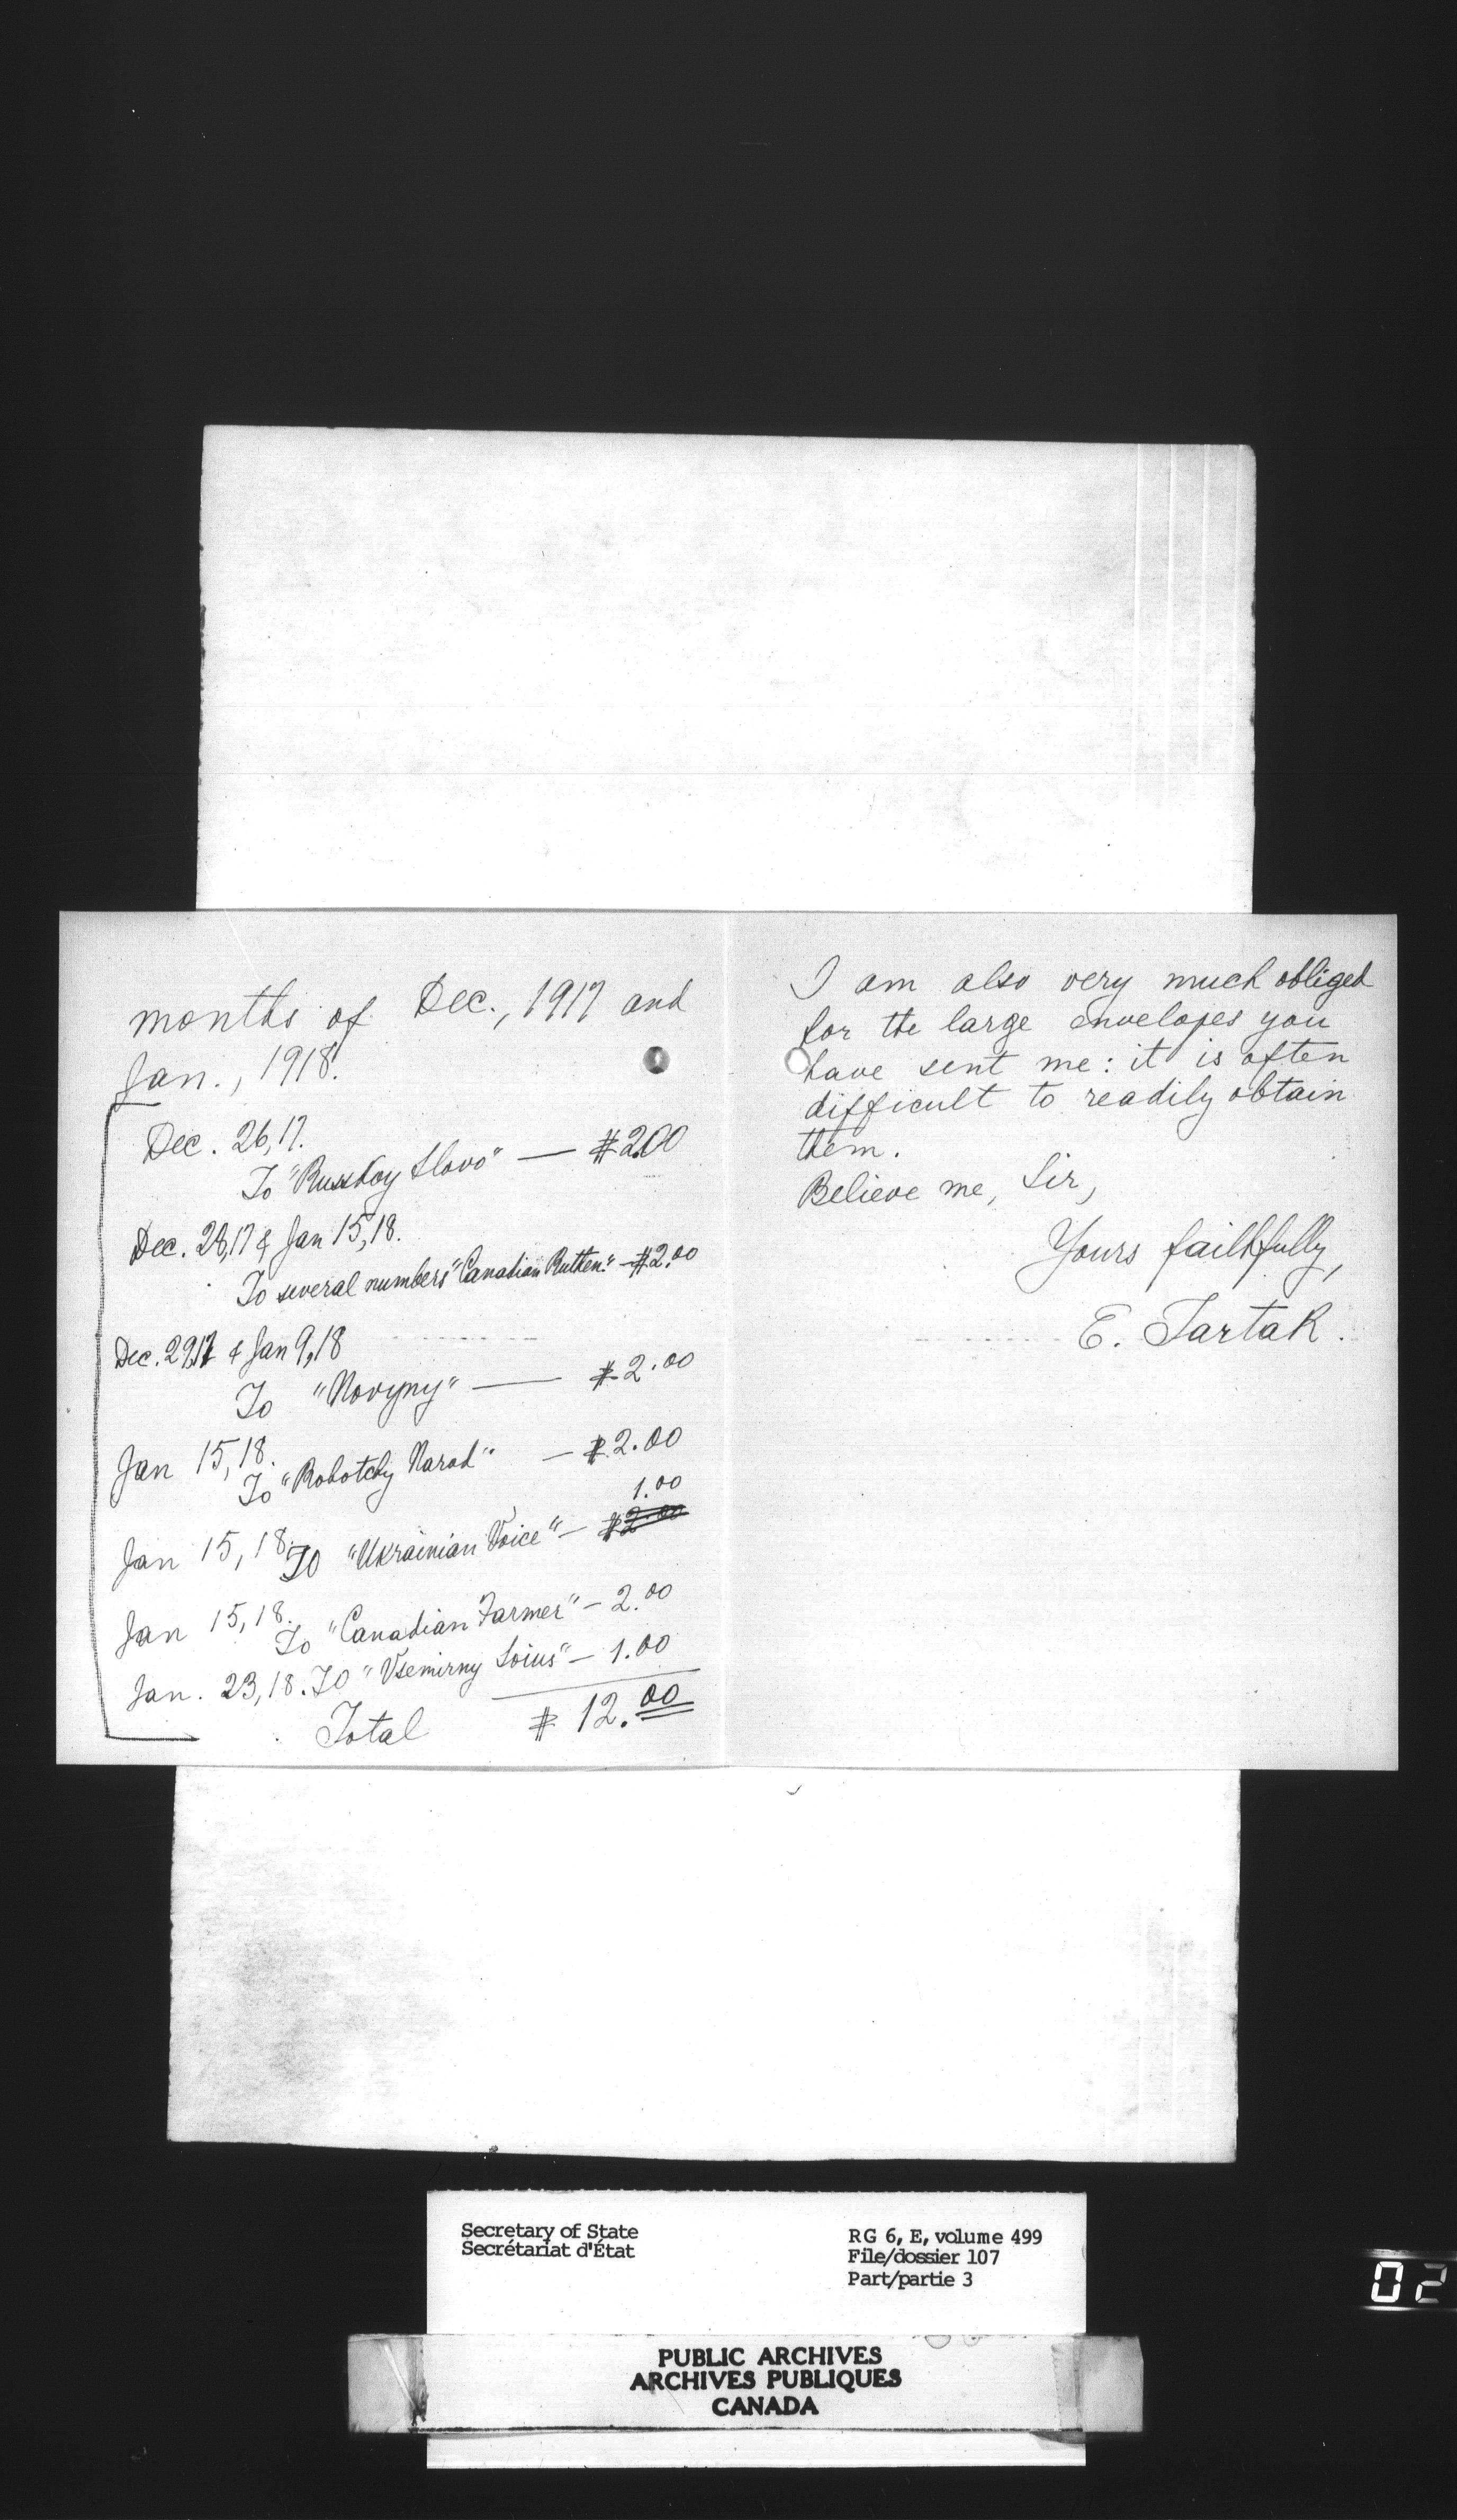 months of Dec., 1917 and
Jan., 1918.
Dec. 26, 17.
To "Russkoy Slovo" — $2.00
Dec. 28, 17 & Jan 15, 18.
To several numbers "Canadian Ruthen." — $2.00
Dec. 29, 17 & Jan 9, 18
To "Novyny" — $2.00
Jan 15, 18.
To "Robotchy Narod" — $2.00
1.00
Jan 15, 18. To "Ukrainian Voice" — $2.00
Jan 15, 18.
To "Canadian Farmer" — 2.00
Jan. 23, 18. To "Vsemirny Soius" — 1.00
Total $12.00
I am also very much obliged
for the large envelopes you
have sent me: it is often
difficult to readily obtain
them.
Believe me, Sir,
Yours faithfully,
E. Tartak.
Secretary of State
Secrétariat d'État
RG 6, E, volume 499
File/dossier 107
Part/partie 3
PUBLIC ARCHIVES
ARCHIVES PUBLIQUES
CANADA
02